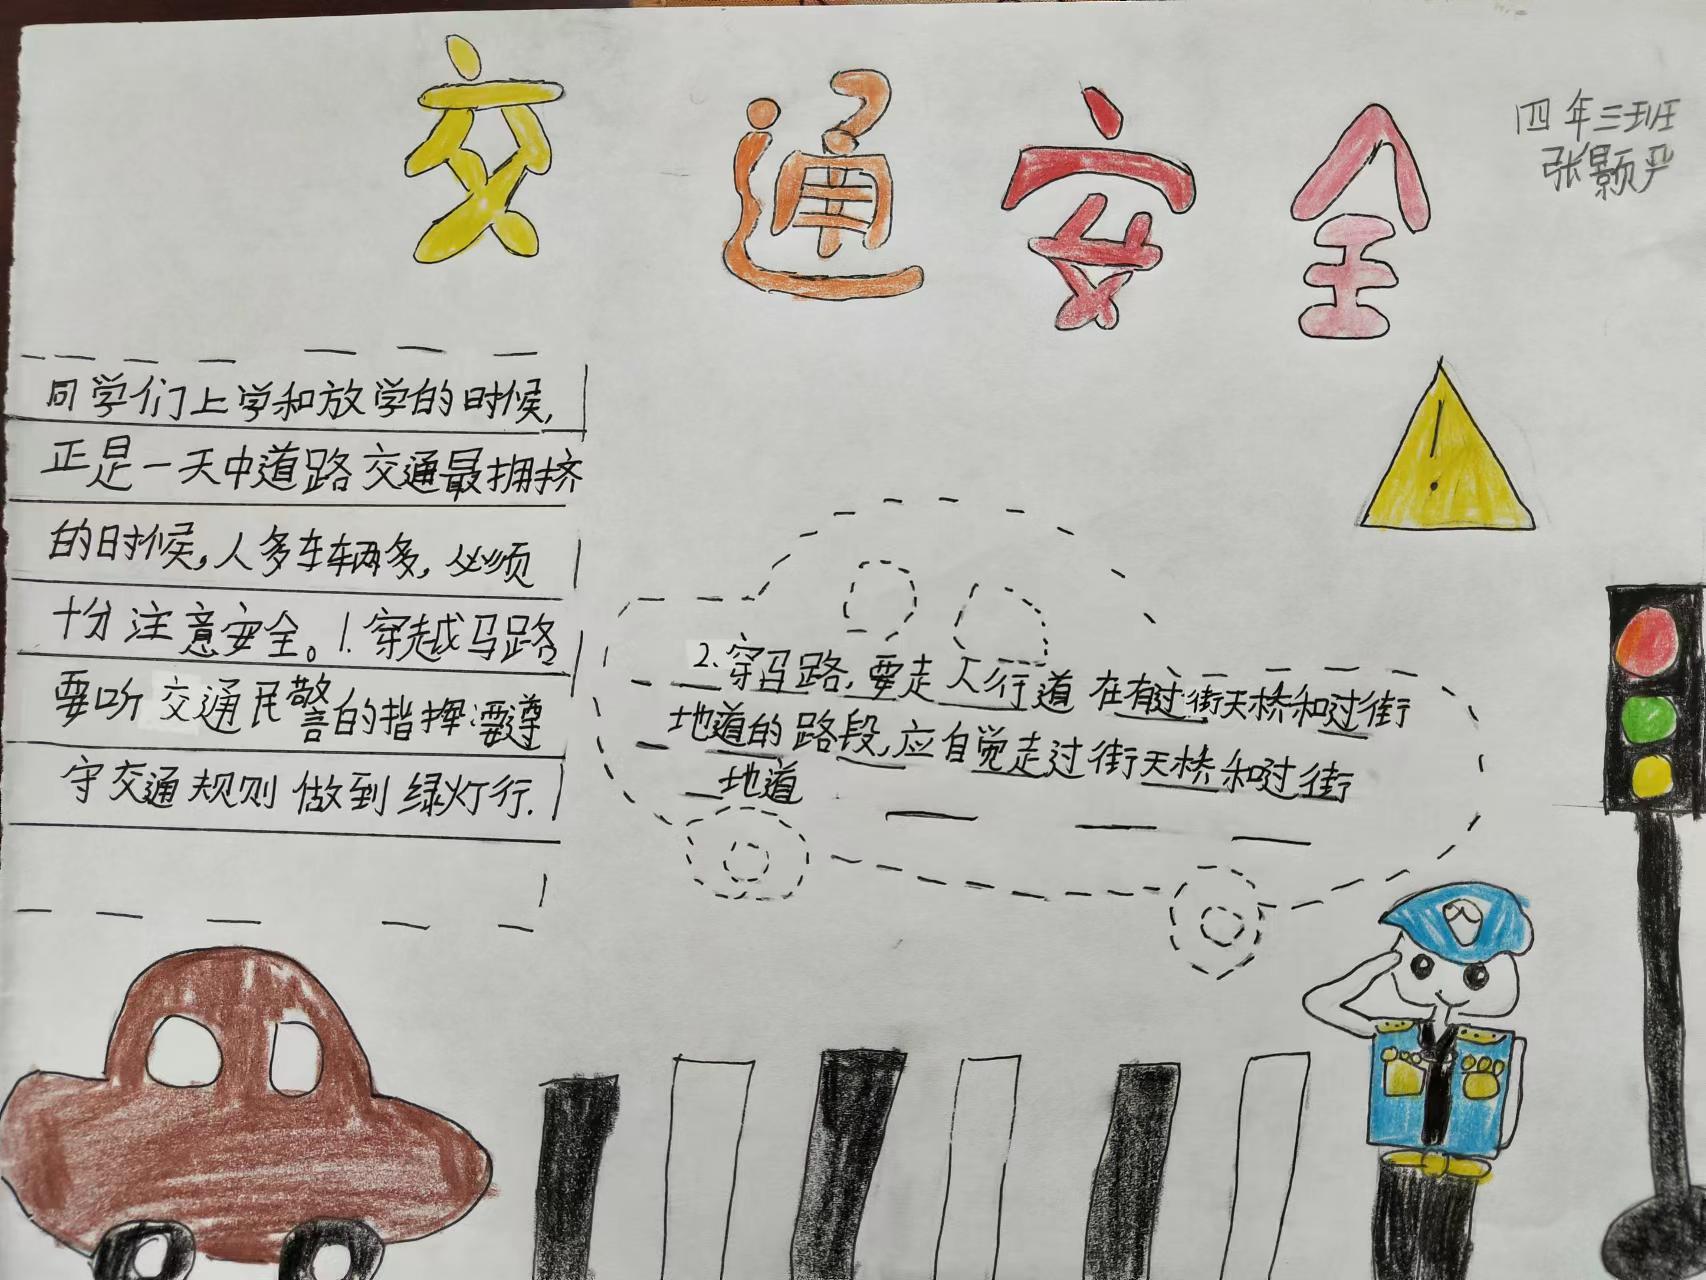 交通安全
四年三班
张颢严
同学们上学和放学的时候,
正是一天中道路交通最拥挤
的时候,人多车辆多,必须
十分注意安全。1.穿越马路
要听交通民警的指挥要遵
守交通规则做到绿灯行.
2.穿马路,要走人行道在有过街天桥和过街
地道的路段,应自觉走过街天桥和过街
地道